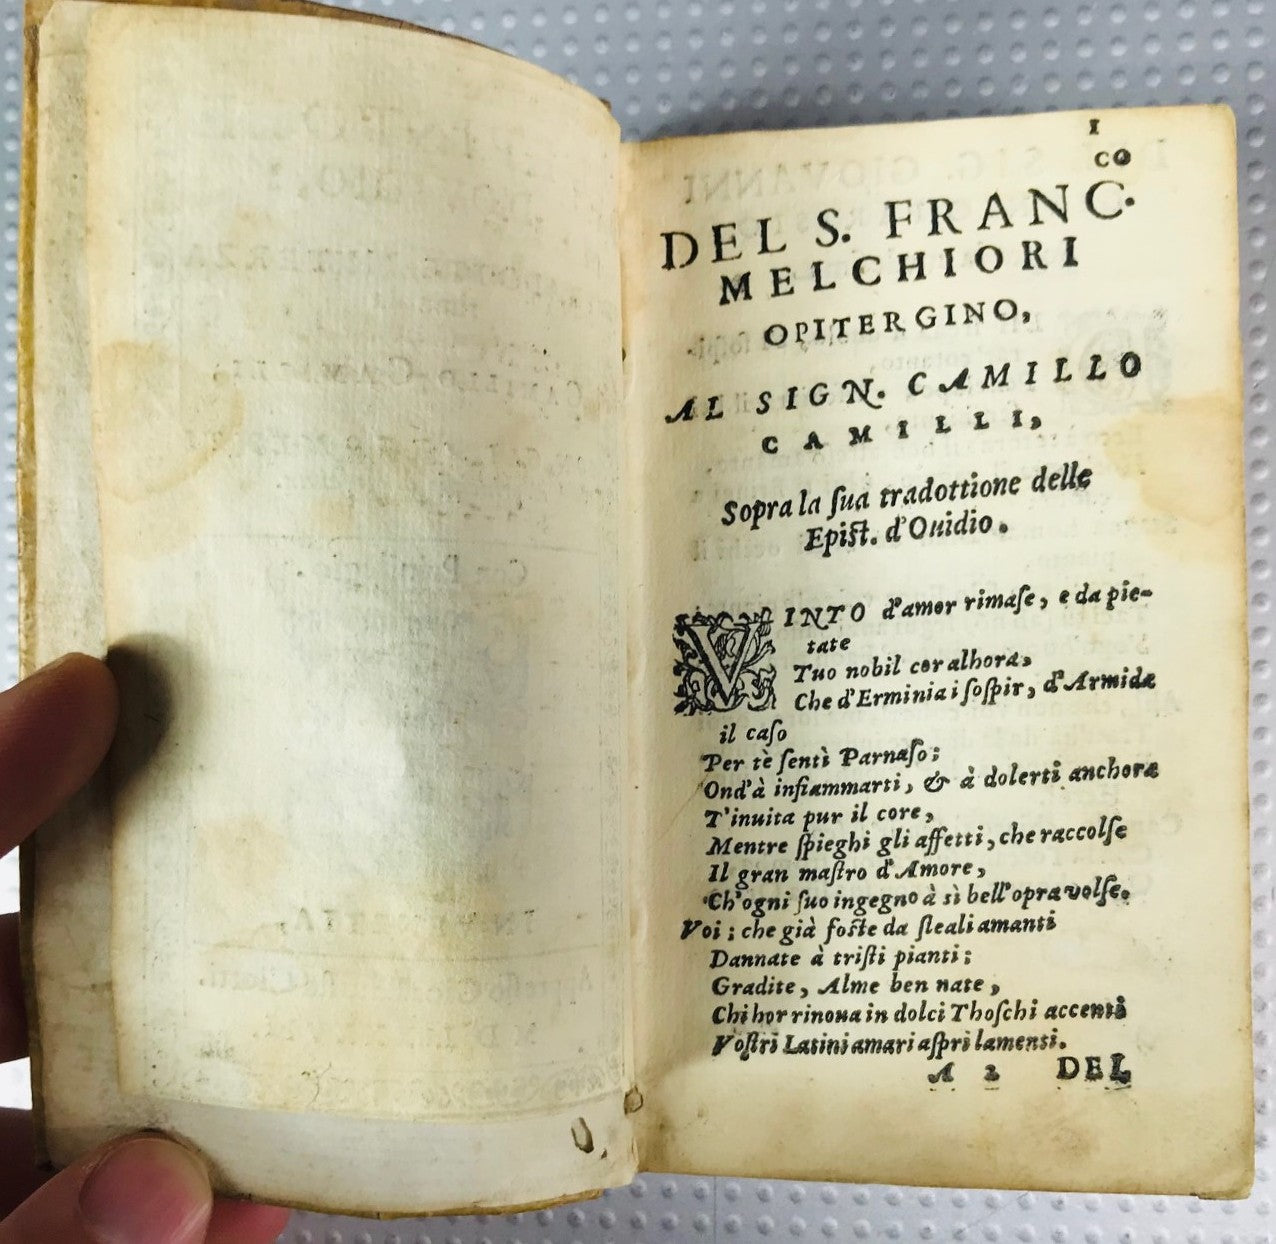 I
DEL S. FRANC.CO
MELCHIORI
OPITERGINO,
AL SIGN. CAMILLO
CAMILLI,
Sopra la ſua tradottione delle
Epiſt. d'Ouidio.
VINTO d'amor rimaſe, e da pie-
tate
Tuo nobil cor alhora,
Che d'Erminia i ſoſpir, d'Armida
il caſo
Per tè ſentì Parnaſo;
Ond'à infiammarti, & à dolerti anchora
T'inuita pur il core,
Mentre ſpieghi gli affetti, che raccolſe
Il gran maſtro d'Amore,
Ch'ogni ſuo ingegno à sì bell'opra volſe.
Voi; che già foſte da ſleali amanti
Dannate à triſti pianti;
Gradite, Alme ben nate,
Chi hor rinoua in dolci Thoſchi accenti
Voſtri Latini amari aſpri lamenti.
A 2 DEL